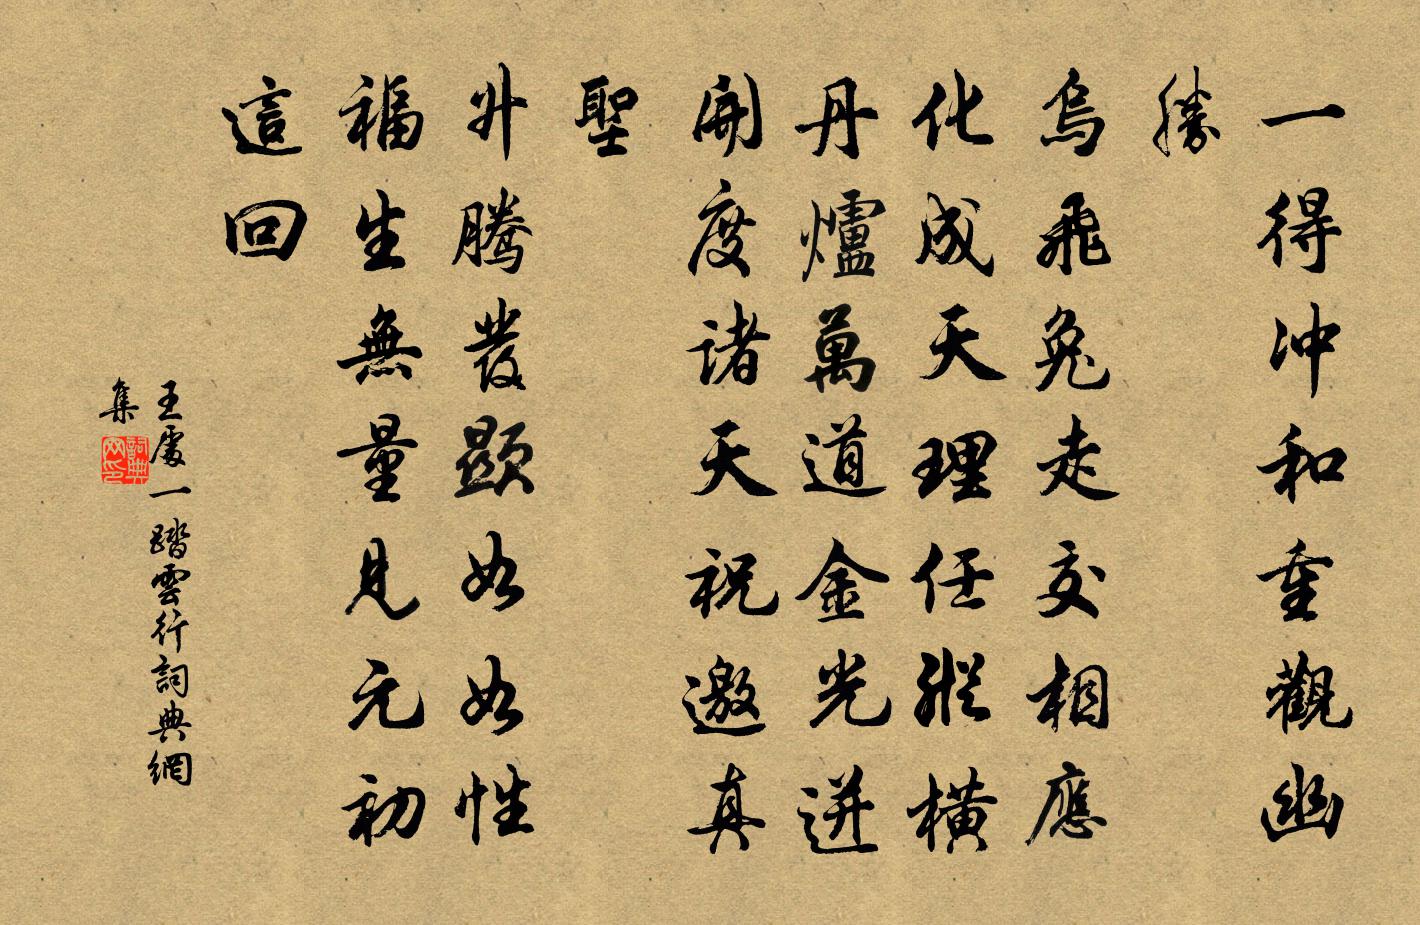 一得冲和重觀幽
勝
烏飛兔走交相應
化成天理任縱橫
丹爐萬道金光迸
開度諸天祝邀真
聖
升騰發顯如如性
福生無量見元初
這回
王處一踏雲行詞典網
集
詞典
网印